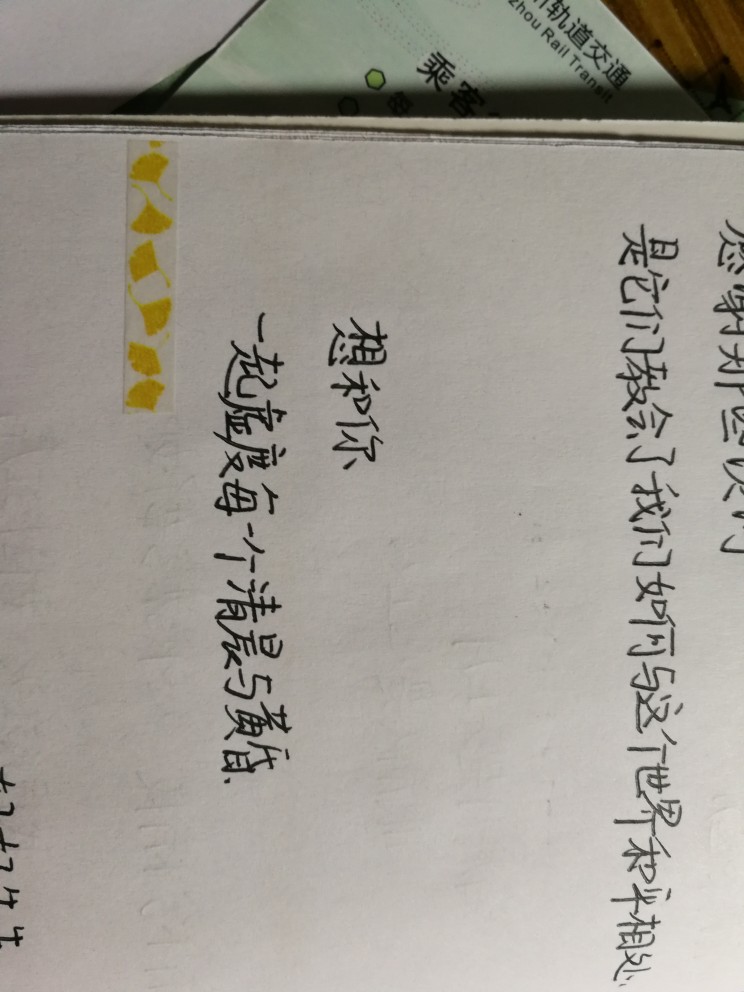 轨道交通
zhou Rail Transit
乘客
是它们教会了我们如何与这个世界和平相处.
想和你
一起虚度每一个清晨与黄昏.